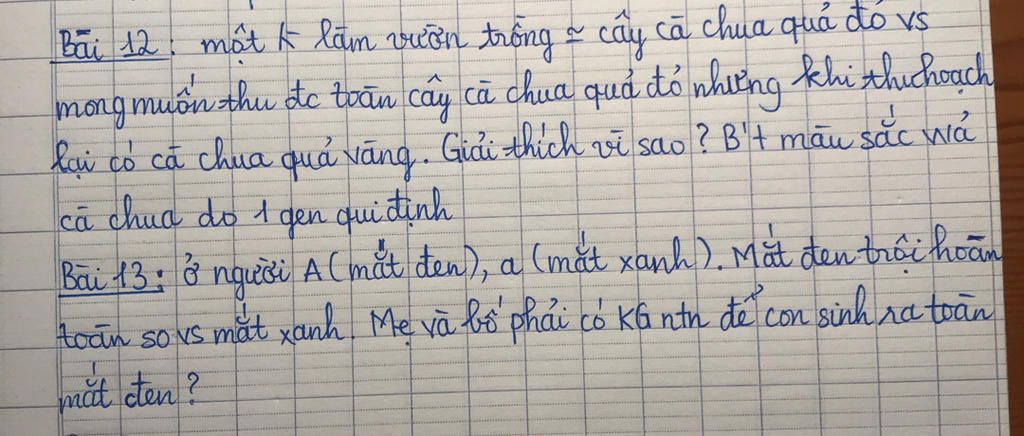 Bài 12: một k làm vườn trồng ~ cây cà chua quả đỏ vs
mong muốn thu đc toàn cây cà chua quả đỏ nhưng khi thu hoạch
lại có cà chua quả vàng. Giải thích vì sao? B't màu sắc wả
cà chua do 1 gen qui định
Bài 13: ở người A (mắt đen), a (mắt xanh). Mắt đen trội hoàn
toàn so vs mắt xanh. Mẹ và bố phải có KG ntn để con sinh ra toàn
mắt đen?